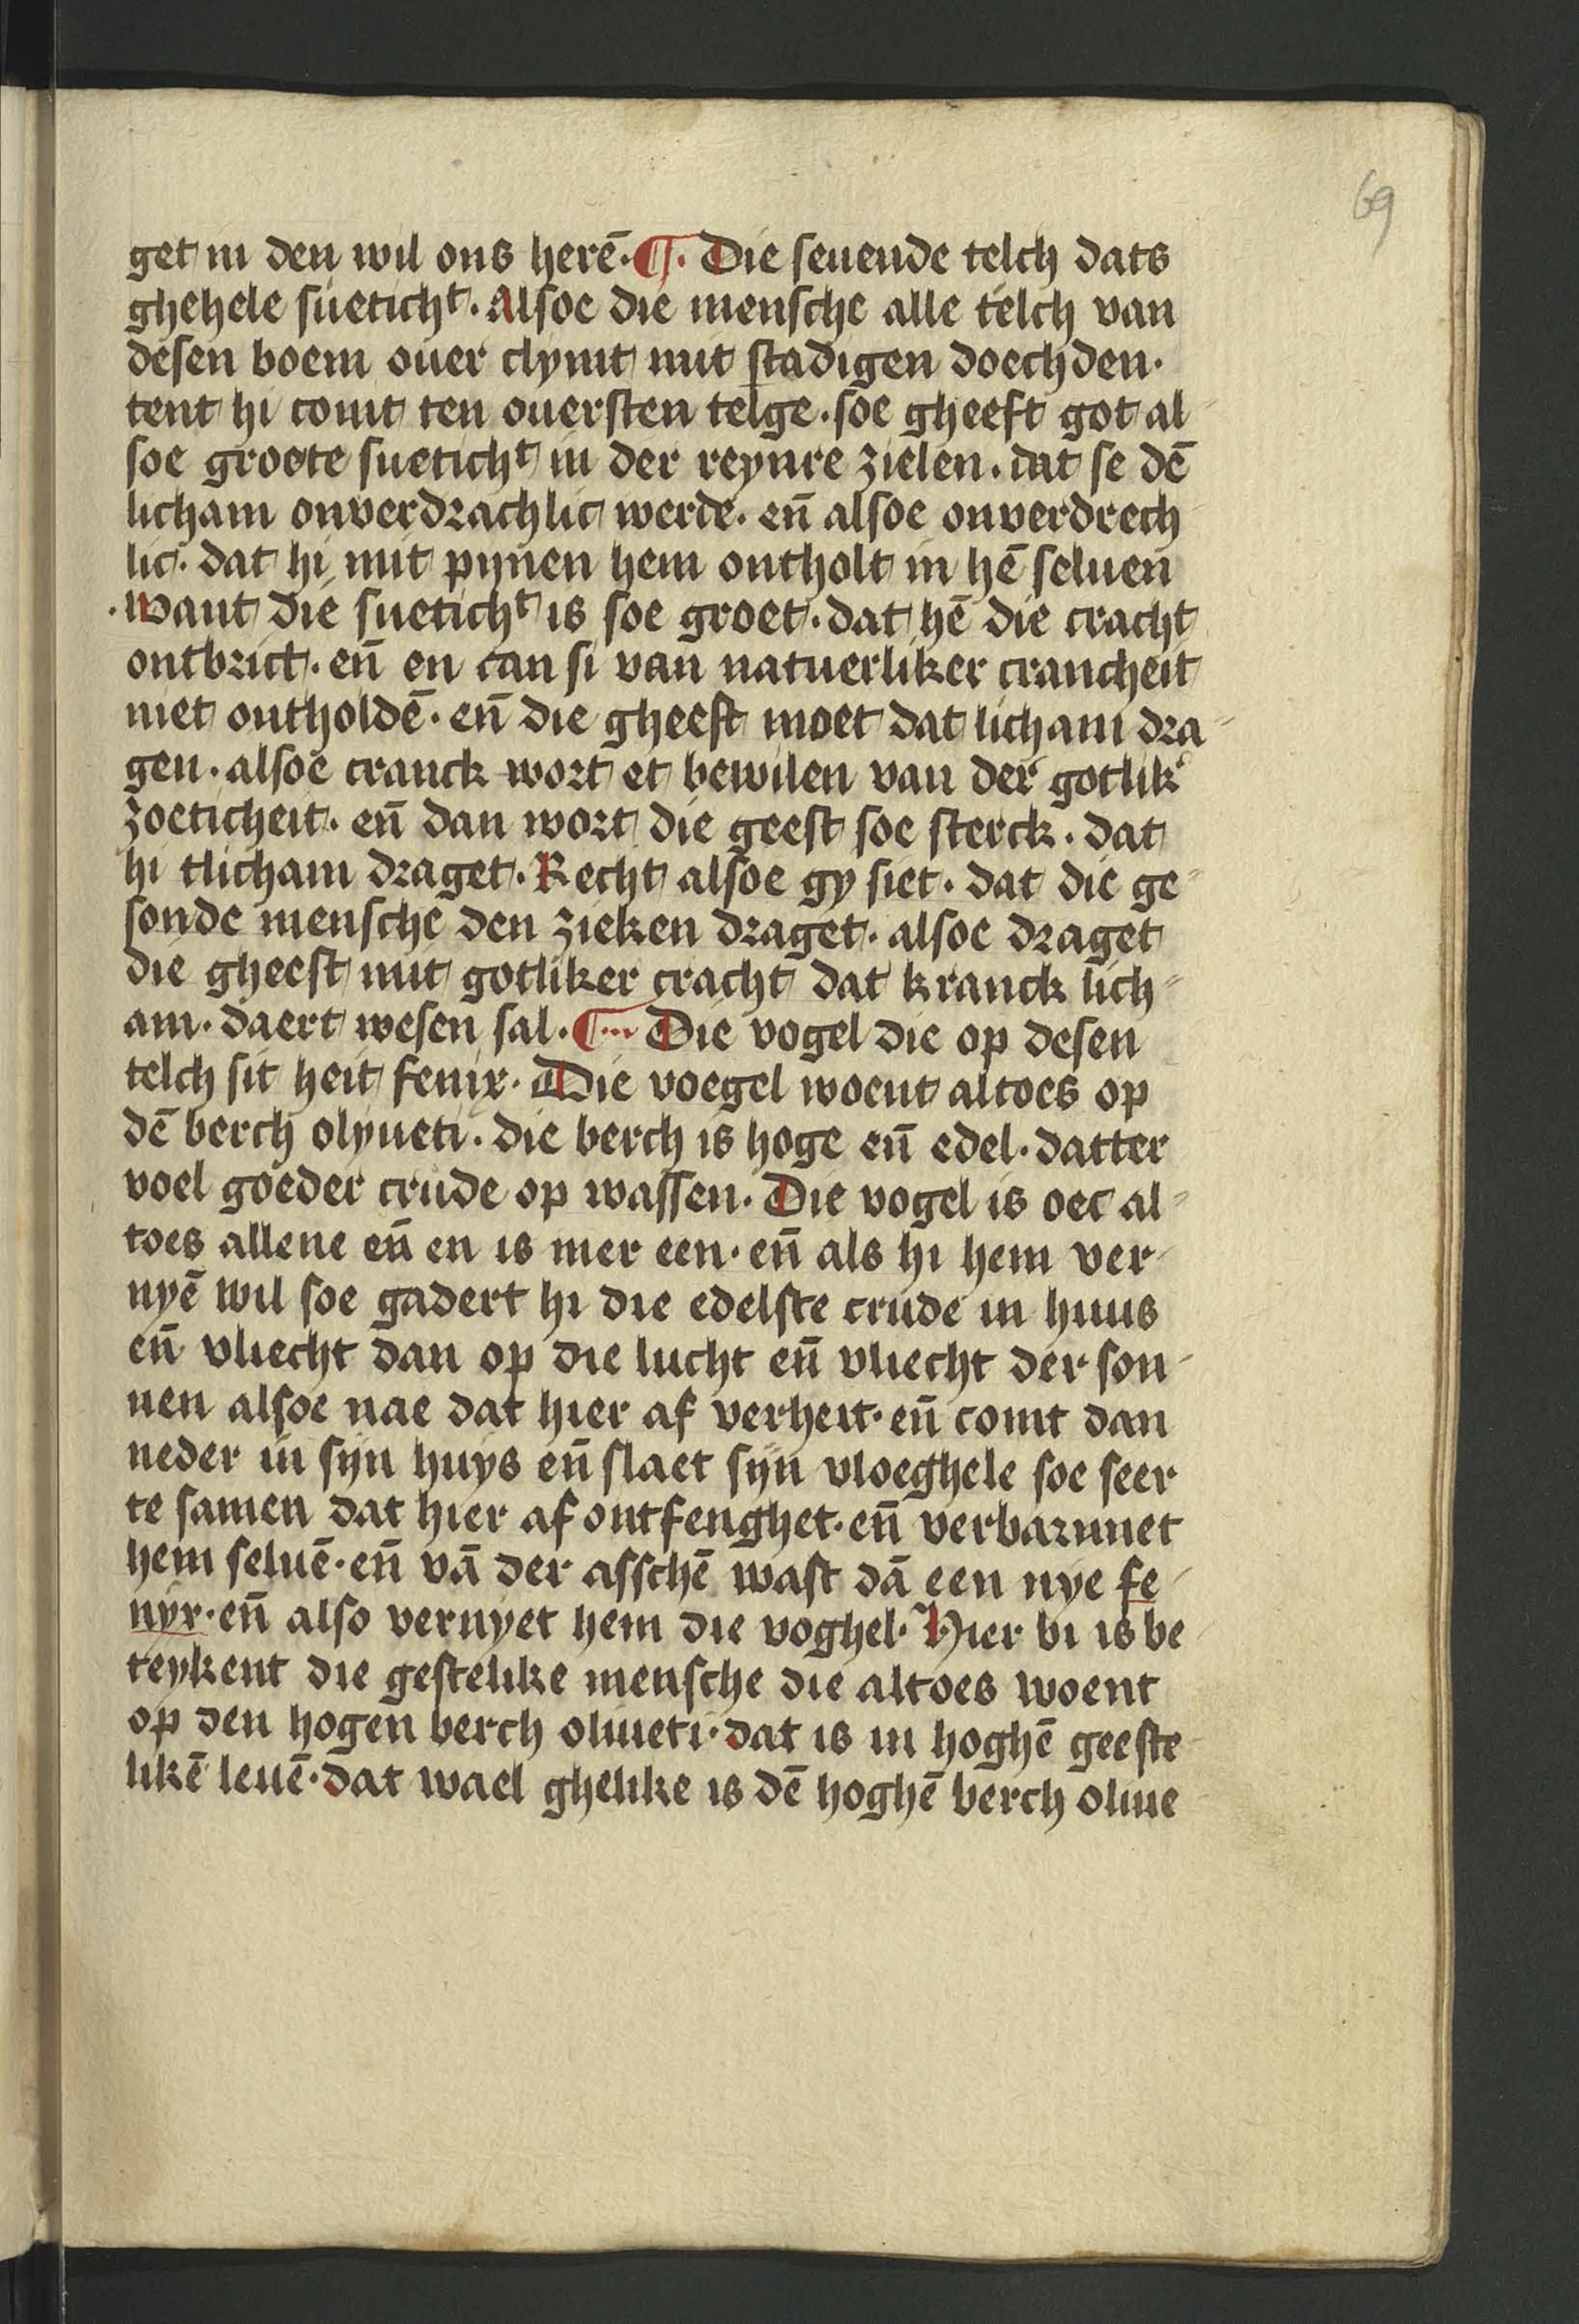 69
get in den wil ons herē. ¶. Die seuende telch dats
ghehele suetichᵗ. Alsoe die mensche alle telch van
desen boem ouer clymt mit stadigen doechden.
tent hi comt ten ouersten telge. soe gheeft got al-
soe groote suetichᵗ in der reynre zielen. dat se dē
licham onverdrachlic werde. en̄ alsoe onverdrech-
lic. dat hi mit pynen hem ontholt in hē seluen
. want die suetichᵗ is soe groet. dat hē die cracht
ontbrict. en̄ en can si van natuerliker crancheit
niet ontholdē. en̄ die gheest moet dat licham dra-
gen. alsoe cranck wort et bewilen van der gotlikʼ
zoeticheit. en̄ dan wort die geest soe sterck. dat
hi tlicham draget. Recht alsoe gy siet. dat die ge-
sonde mensche den zieken draget. alsoe draget
die gheest mit gotliker cracht dat kranck lich-
am. daert wesen sal. ¶ Die vogel die op desen
telch sit heit fenix. Die voegel woent altoes op
dē berch olyueti. die berch is hoge en̄ edel. datter
voel goeder crude op wassen. Die vogel is oec al-
toes allene en̄ en is mer een. en̄ als hi hem ver-
nyē wil soe gadert hi die edelste crude in huus
en̄ vliecht dan op die lucht en̄ vliecht der son-
nen alsoe nae dat hier af verheit. en̄ comt dan
neder in syn huys en̄ slaet syn vloeghele soe seer
te samen dat hier af ontfenghet. en̄ verbarnnet
hem seluē. en̄ vā der asschē wast dā een nye fe-
nyx. en̄ also vernyet hem die voghel. Hier bi is be-
teykent die gestelike mensche die altoes woent
op den hogen berch oliueti. dat is in hoghē geeste-
likē leuē. dat wael ghelike is dē hoghē berch oliue